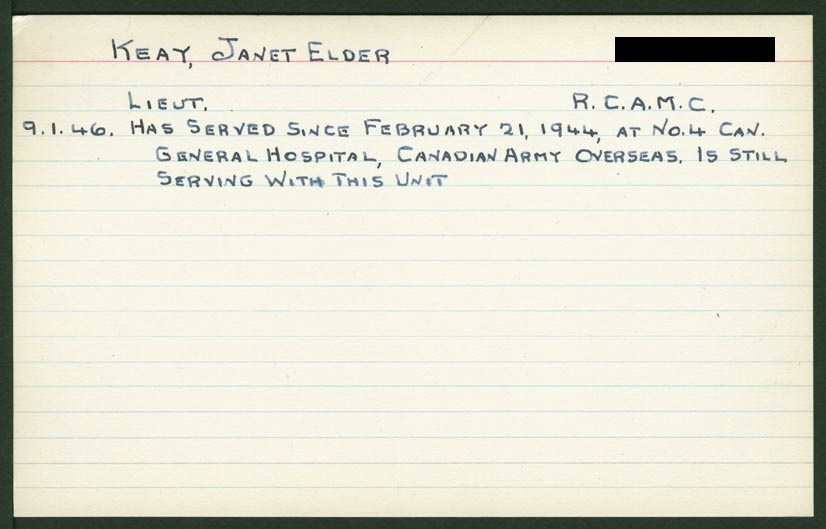 KEAY, JANET ELDER
LIEUT. R.C.A.M.C.
9.1.46. HAS SERVED SINCE FEBRUARY 21, 1944, AT NO.4 CAN.
GENERAL HOSPITAL, CANADIAN ARMY OVERSEAS. IS STILL
SERVING WITH THIS UNIT